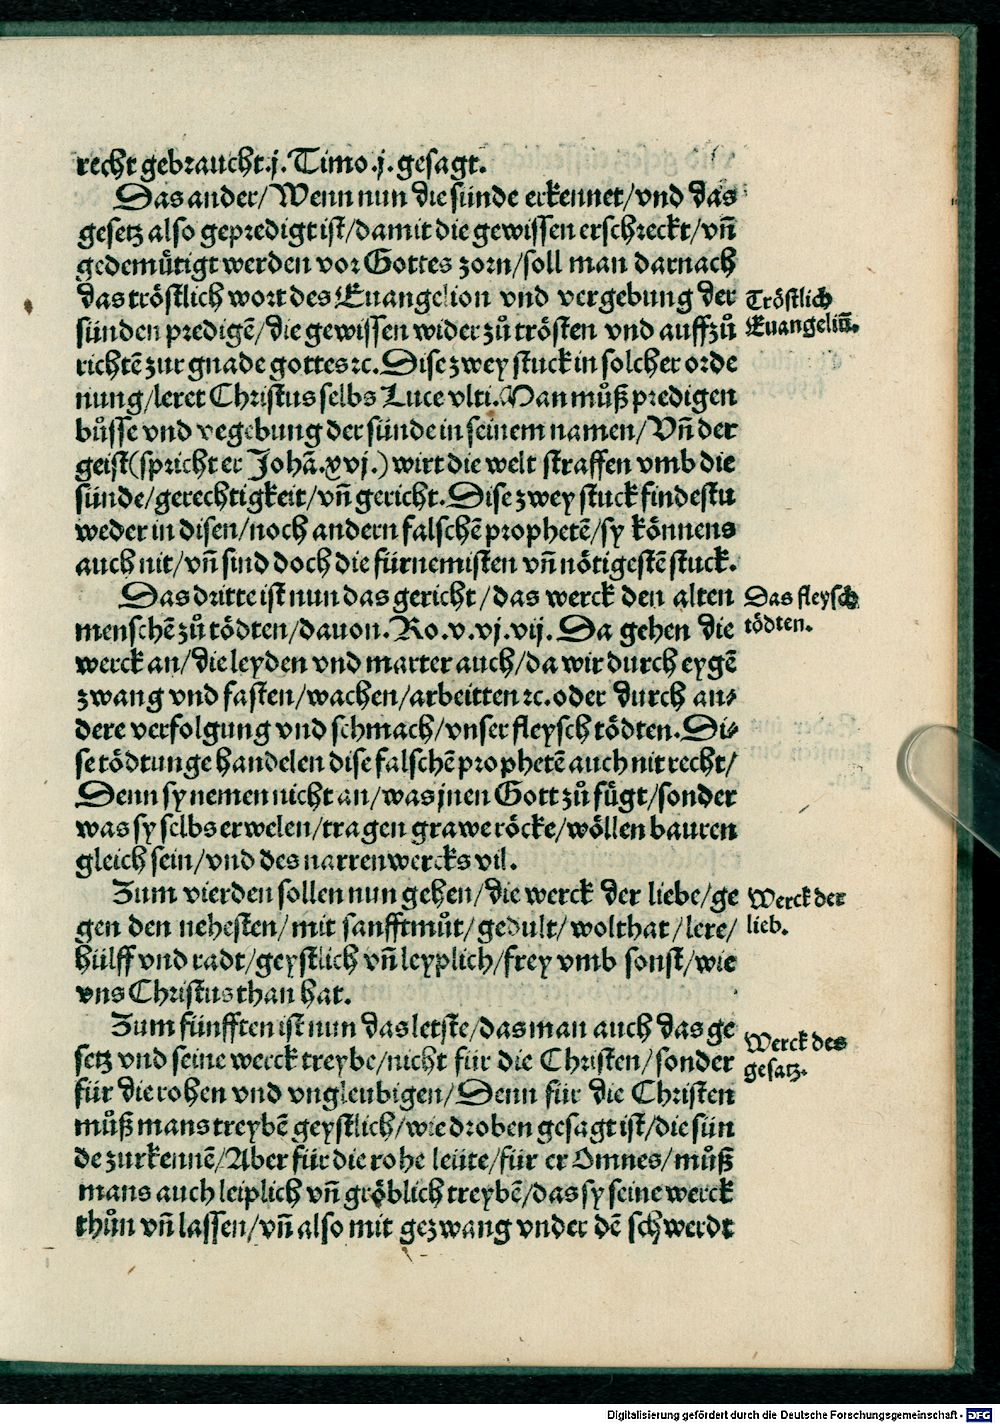 recht gebraucht.j. Timo.j. gesagt.
Das ander/ Wenn nun die sünde erkennet/ vnd das
gesetz also gepredigt ist/ damit die gewissen erschreckt/ vñ
gedemütigt werden vor Gottes zorn/ soll man darnach
das tröstlich wort des Euangelion vnd vergebung der
sünden predigẽ/ die gewissen wider zů trösten vnd auffzů
richtẽ zur gnade gottes ꝛc. Dise zwey stuck in solcher orde
nung/ leret Christus selbs Luce vlti. Man můß predigen
bůsse vnd vegebung der sünde in seinem namen/ Vñ der
geist (spricht er Johã. xvj.) wirt die welt straffen vmb die
sünde/ gerechtigkeit/ vñ gericht. Dise zwey stuck findestu
weder in disen/ noch andern falschẽ prophetẽ/ sy können s
auch nit/ vñ sind doch die fürnemisten vñ nötigestẽ stuck.
Tröstlich
Euangeliũ.
Das dritte ist nun das gericht/ das werck den alten
menschẽ zů tödten/ dauon. Ro. v. vj. vij. Da gehen die
werck an/ die leyden vnd marter auch/ da wir durch eygẽ
zwang vnd fasten/ wachen/ arbeitten ꝛc. oder durch an⸗
dere verfolgung vnd schmach/ vnser fleysch tödten. Di⸗
se tödtunge handelen dise falschẽ prophetẽ auch nit recht/
Denn sy nemen nicht an/ was jnen Gott zů fügt/ sonder
was sy selbs erwelen/ tragen grawe röcke/ wöllen bauren
gleich sein/ vnd des narrenwercks vil.
Das fleysch
tödten.
Zum vierden sollen nun gehen/ die werck der liebe/ ge
gen den nehesten/ mit sanfftmůt/ gedult/ wolthat/ lere/
hülff vnd radt/ geystlich vñ leyplich/ frey vmb sonst/ wie
vns Christus than hat.
Werck der
lieb.
Zum fünfften ist nun das letste/ das man auch das ge
setz vnd seine werck treybe/ nicht für die Christen/ sonder
für die rohen vnd vngleubigen/ Denn für die Christen
můß mans treybẽ geystlich/ wie droben gesagt ist/ die sün
de zurkennẽ/ Aber für die rohe leüte/ für er Omnes/ můß
mans auch leiplich vñ gröblich treybẽ/ das sy seine werck
thůn vñ lassen/ vñ also mit gezwang vnder dẽ schwerdt
Werck des
gesatz.
Digitalisierung gefördert durch die Deutsche Forschungsgemeinschaft - DFG